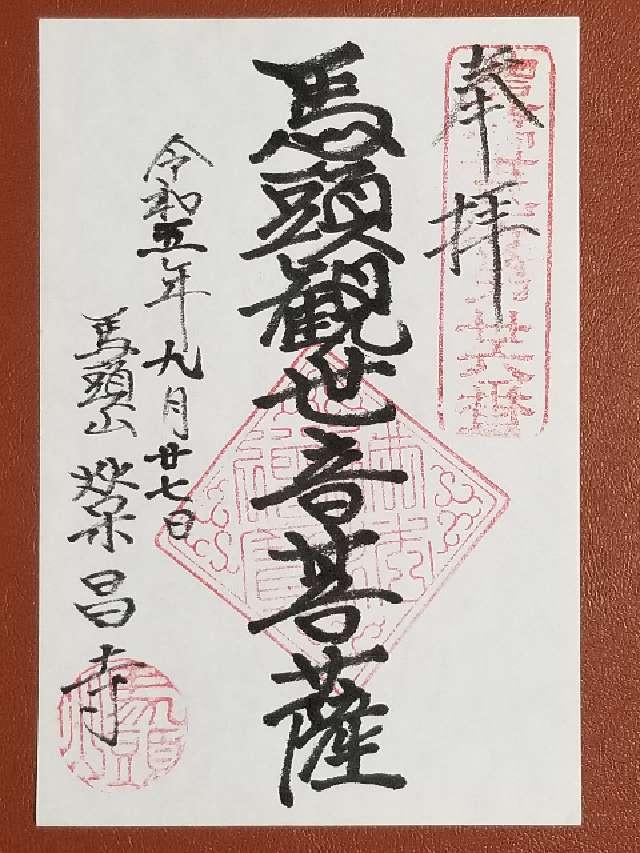 奉拝
馬頭観世音菩薩
令和五年九月廿七日
馬頭山 榮昌寺